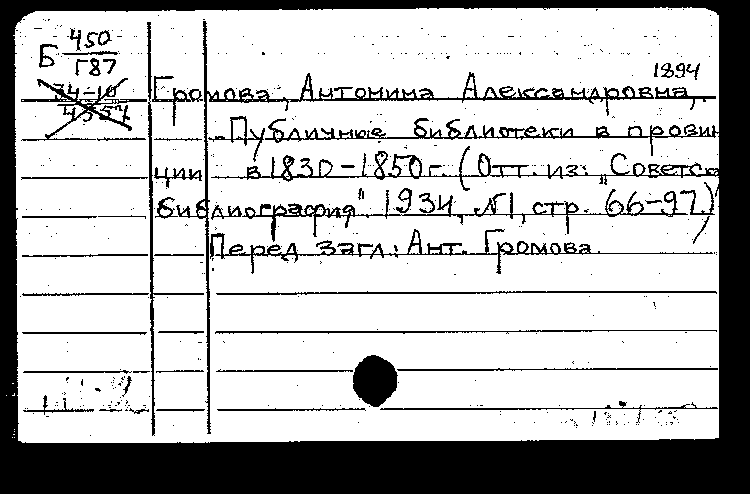 Б 450
Г87
34-10
4557
1894
Громова, Антонина Александровна,
Публичные библиотеки в провин
ции в 1830-1850 г. (Отт. из: „Советск
библиография". 1934, №1, стр. 66-97.)
Перед загл.: Ант. Громова.